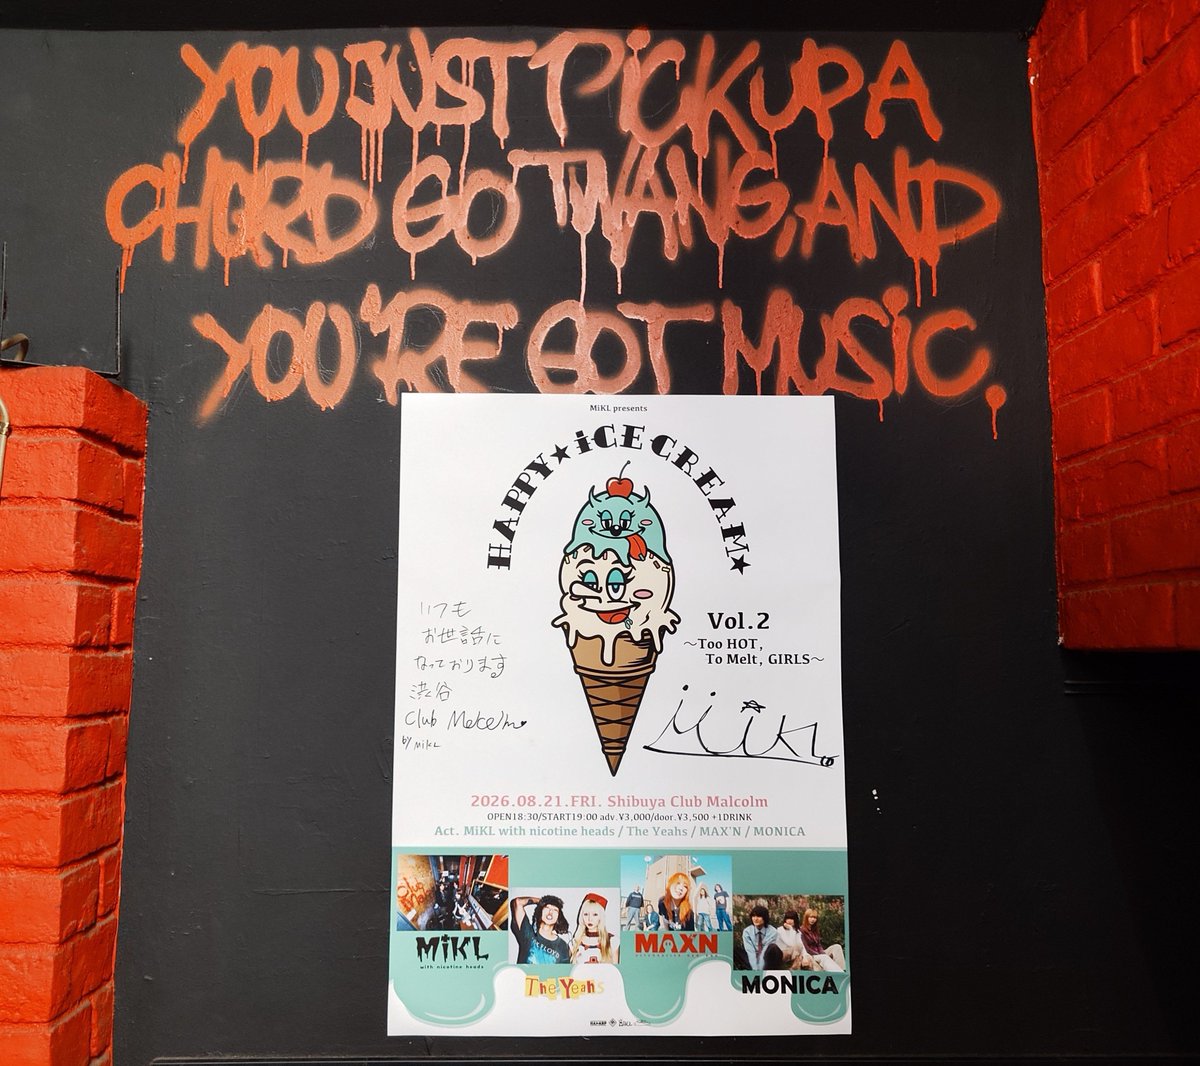 YOU JUST PiCK UP A
CHORD GO TWANG, AND
YOU'RE GOT MUSiC.
MiKL presents
HAPPY★iCE CREAM★
Vol.2
～Too HOT,
To Melt, GIRLS～
いつも
お世話に
なっております。
渋谷
Club Malcolm♥
by MiKL
MiKL
2026.08.21.FRI. Shibuya Club Malcolm
OPEN18:30/START19:00 adv.¥3,000/door.¥3,500 +1DRINK
Act. MiKL with nicotine heads / The Yeahs / MAX'N / MONICA
MiKL
with nicotine heads
The Yeahs
MAX'N
MONICA